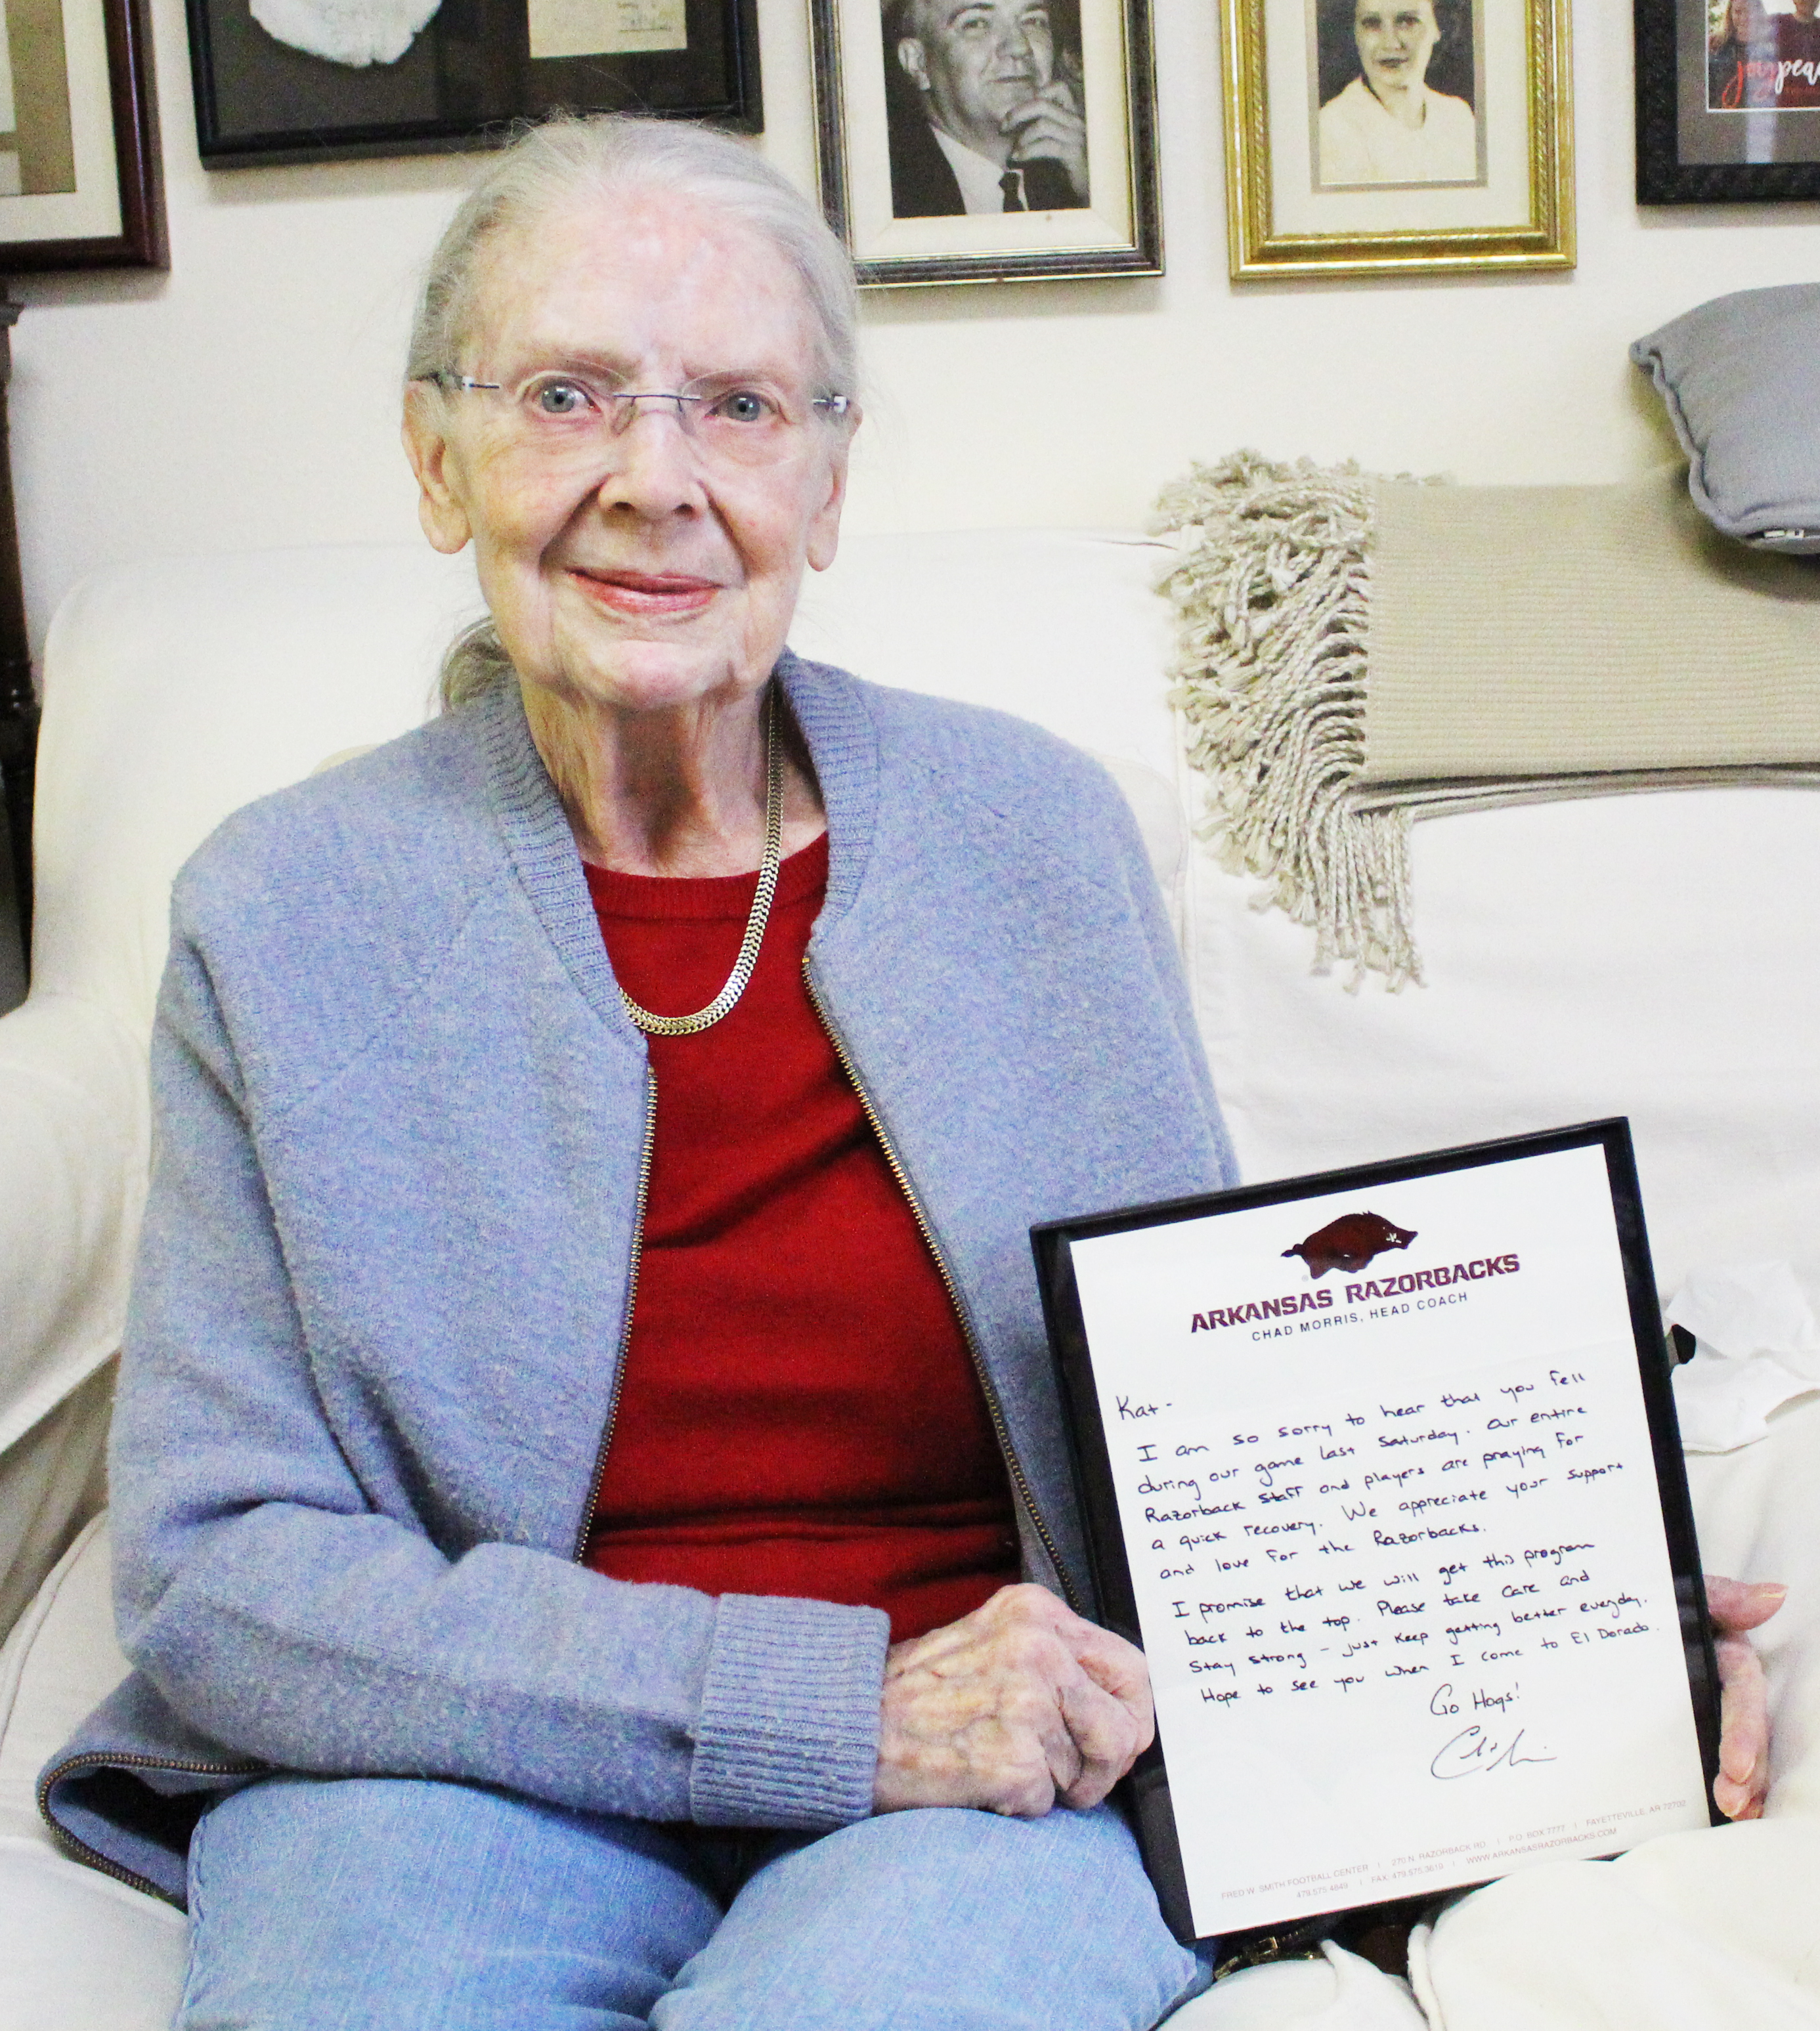 joypea
ARKANSAS RAZORBACKS
CHAD MORRIS, HEAD COACH
Kat-
I am so sorry to hear that you fell
during our game last Saturday. Our entire
Razorback staff and players are praying for
a quick recovery. We appreciate your support
and love for the Razorbacks.
I promise that we will get this program
back to the top. Please take care and
stay strong - just keep getting better everyday.
Hope to see you when I come to El Dorado.
Go Hogs!
FRED W. SMITH FOOTBALL CENTER | 270 N. RAZORBACK RD. | P.O. BOX 7777 | FAYETTEVILLE, AR 72702
479.575.4649 | FAX: 479.575.3619 | WWW.ARKANSASRAZORBACKS.COM